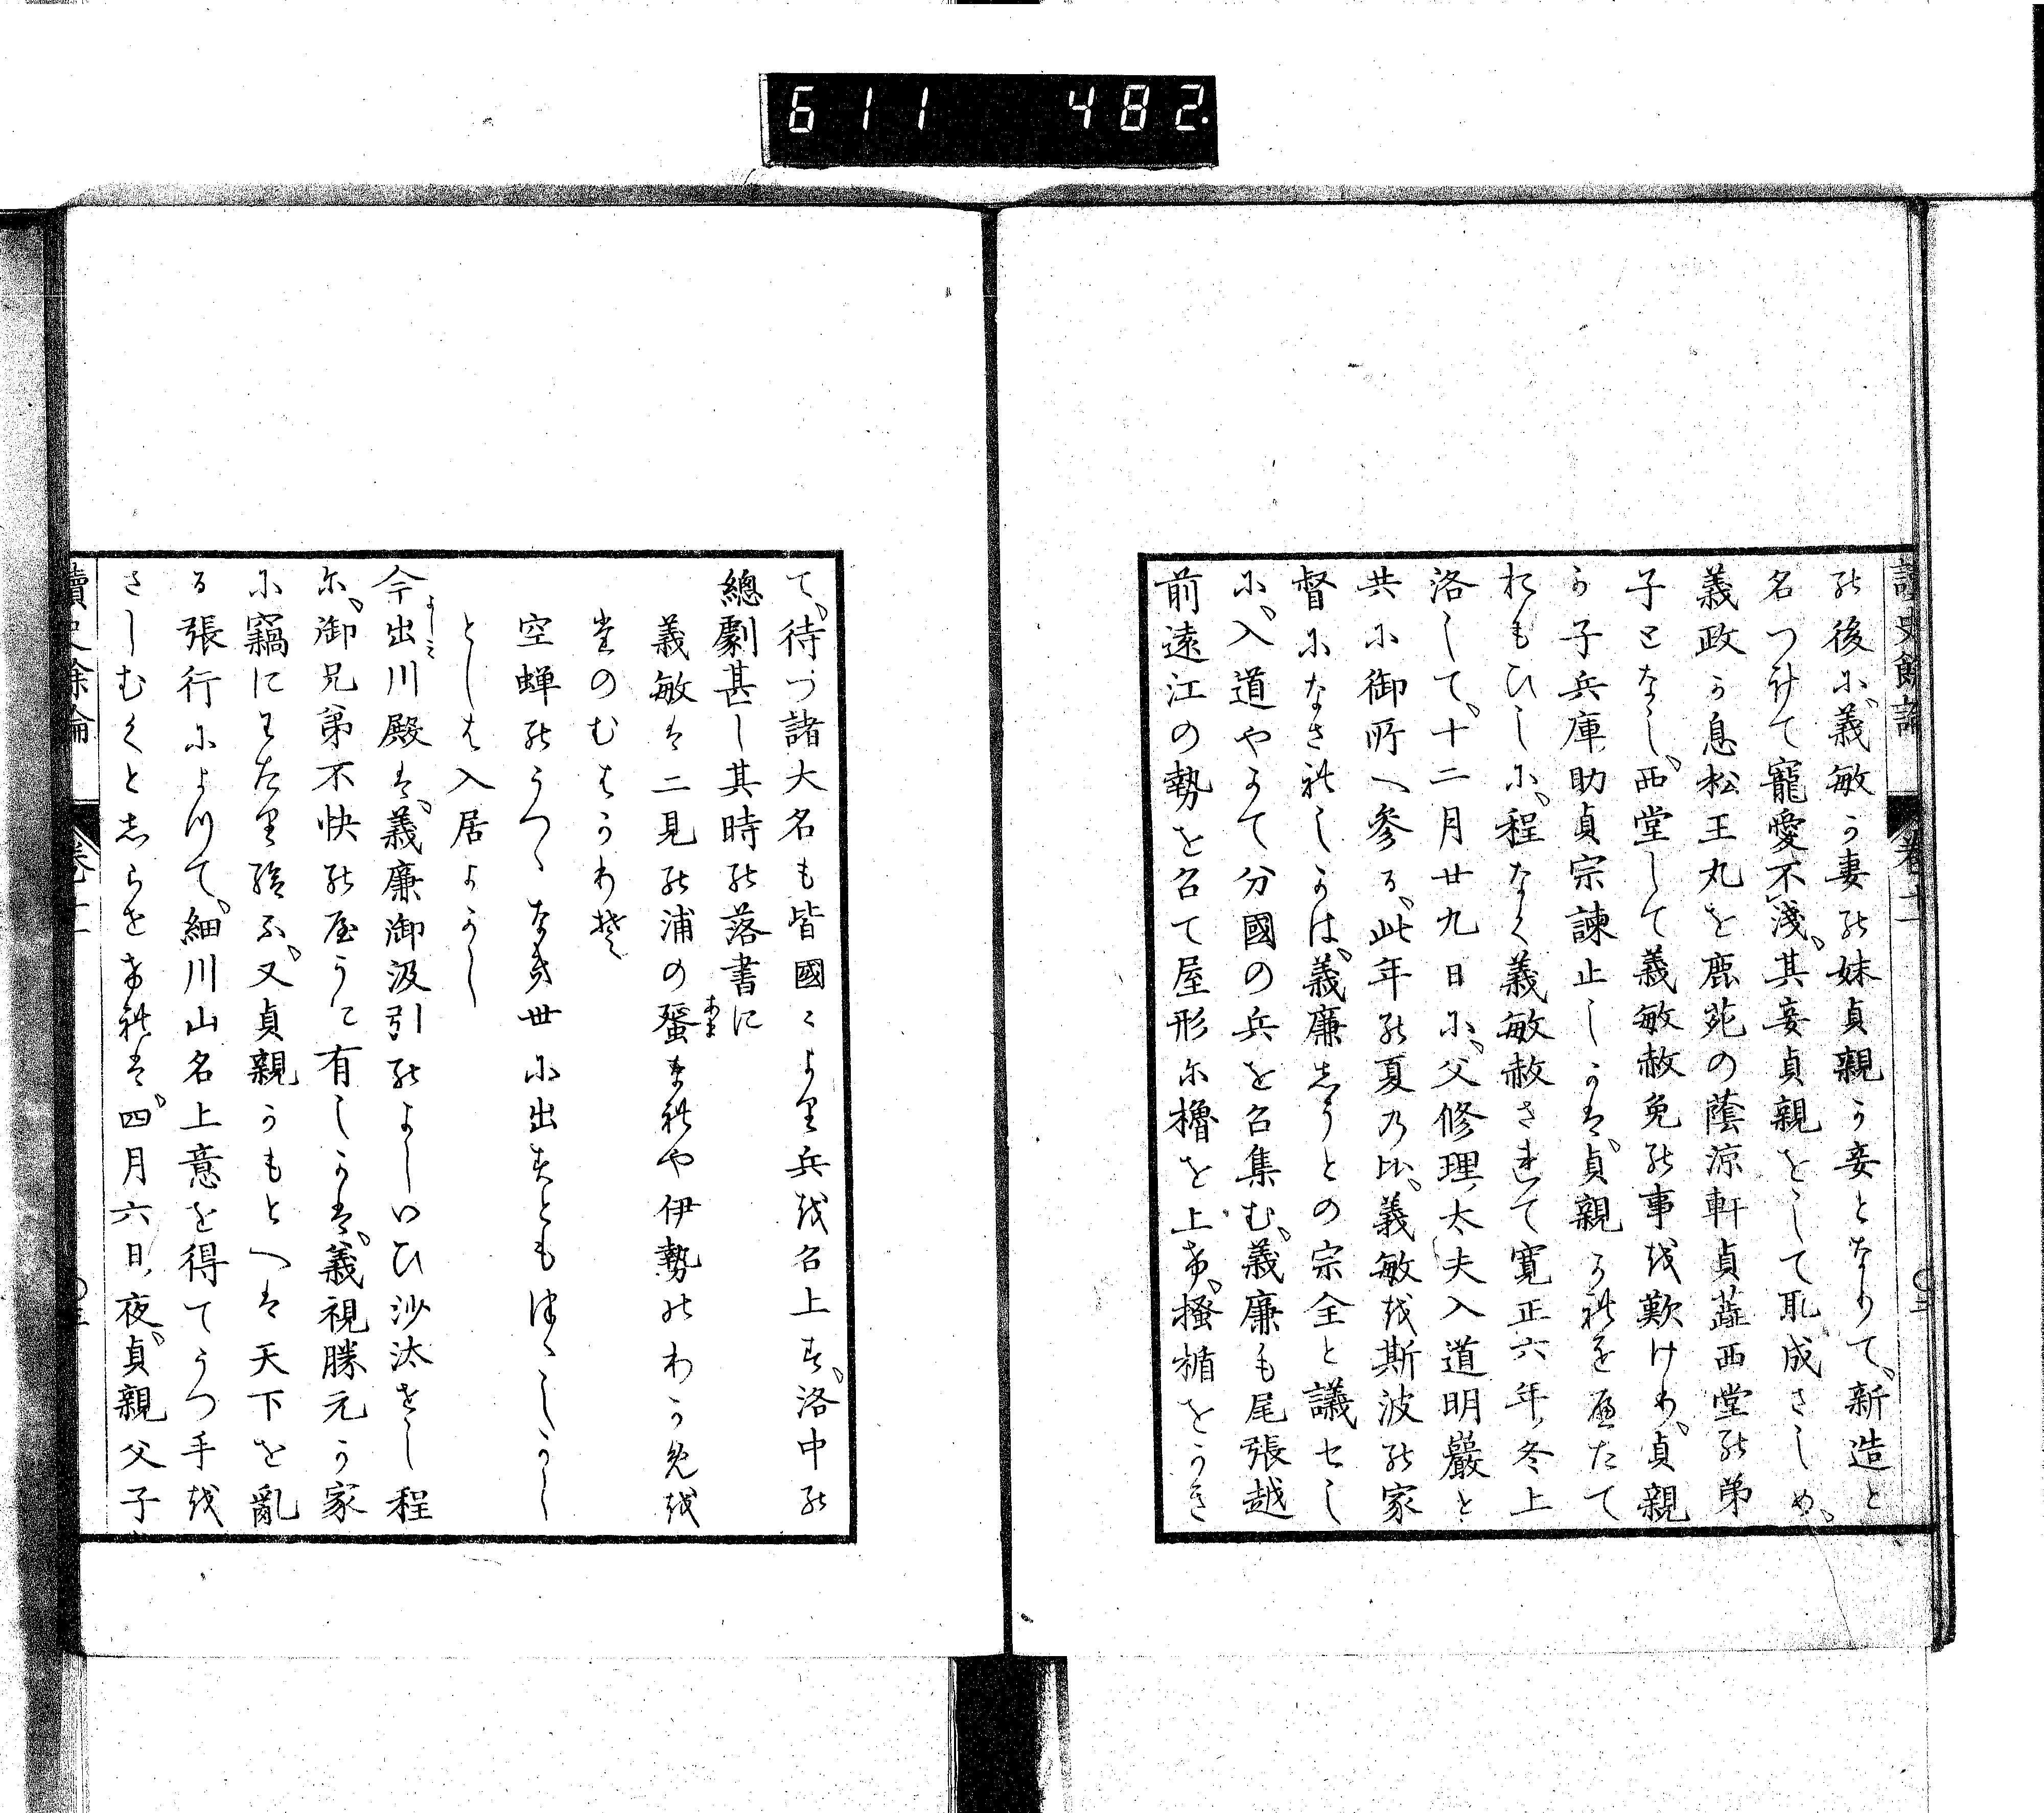 611 482.
讀史餘論 卷十一
の後に、義敏か妻の妹貞親か妾となりて、新造と
名つけて寵愛不淺、其妾貞親をして取成さしめ、
義政か息松王丸を鹿苑の蔭涼軒貞蘂西堂の弟
子となし、西堂して義敏赦免の事を歎けり、貞親
か子兵庫助貞宗諫止しかは、貞親かれをへたて
おもひしに、程なく義敏赦されて寛正六年、冬上
洛して、十二月廿九日に、父修理太夫入道明巖と
共に御所へ參る、此年の夏乃比、義敏を斯波の家
督になされしかは、義廉しうとの宗全と議セし
に、入道やかて分國の兵を召集む、義廉も尾張越
前遠江の勢を召て屋形に櫓を上け、掻楯をかき
て、待つ諸大名も皆國〻より兵を召上す、洛中の
總劇甚し其時の落書に
義敏は二見の浦の蜑あまなれや伊勢のわかめを
たのむはかりそ
空蝉のうつゝなき世に出すともほゝしかし
としは入居よかし
今出川殿よしみは、義廉御汲引のよしいひ沙汰せし程
に、御兄弟不快のやうに有しかは、義視勝元か家
に竊にわたり給ふ、又貞親かもとへは天下を亂
る張行によつて、細川山名上意を得てうつ手を
さしむくとしらせけれは、四月六日、夜、貞親父子
讀史餘論 卷十一